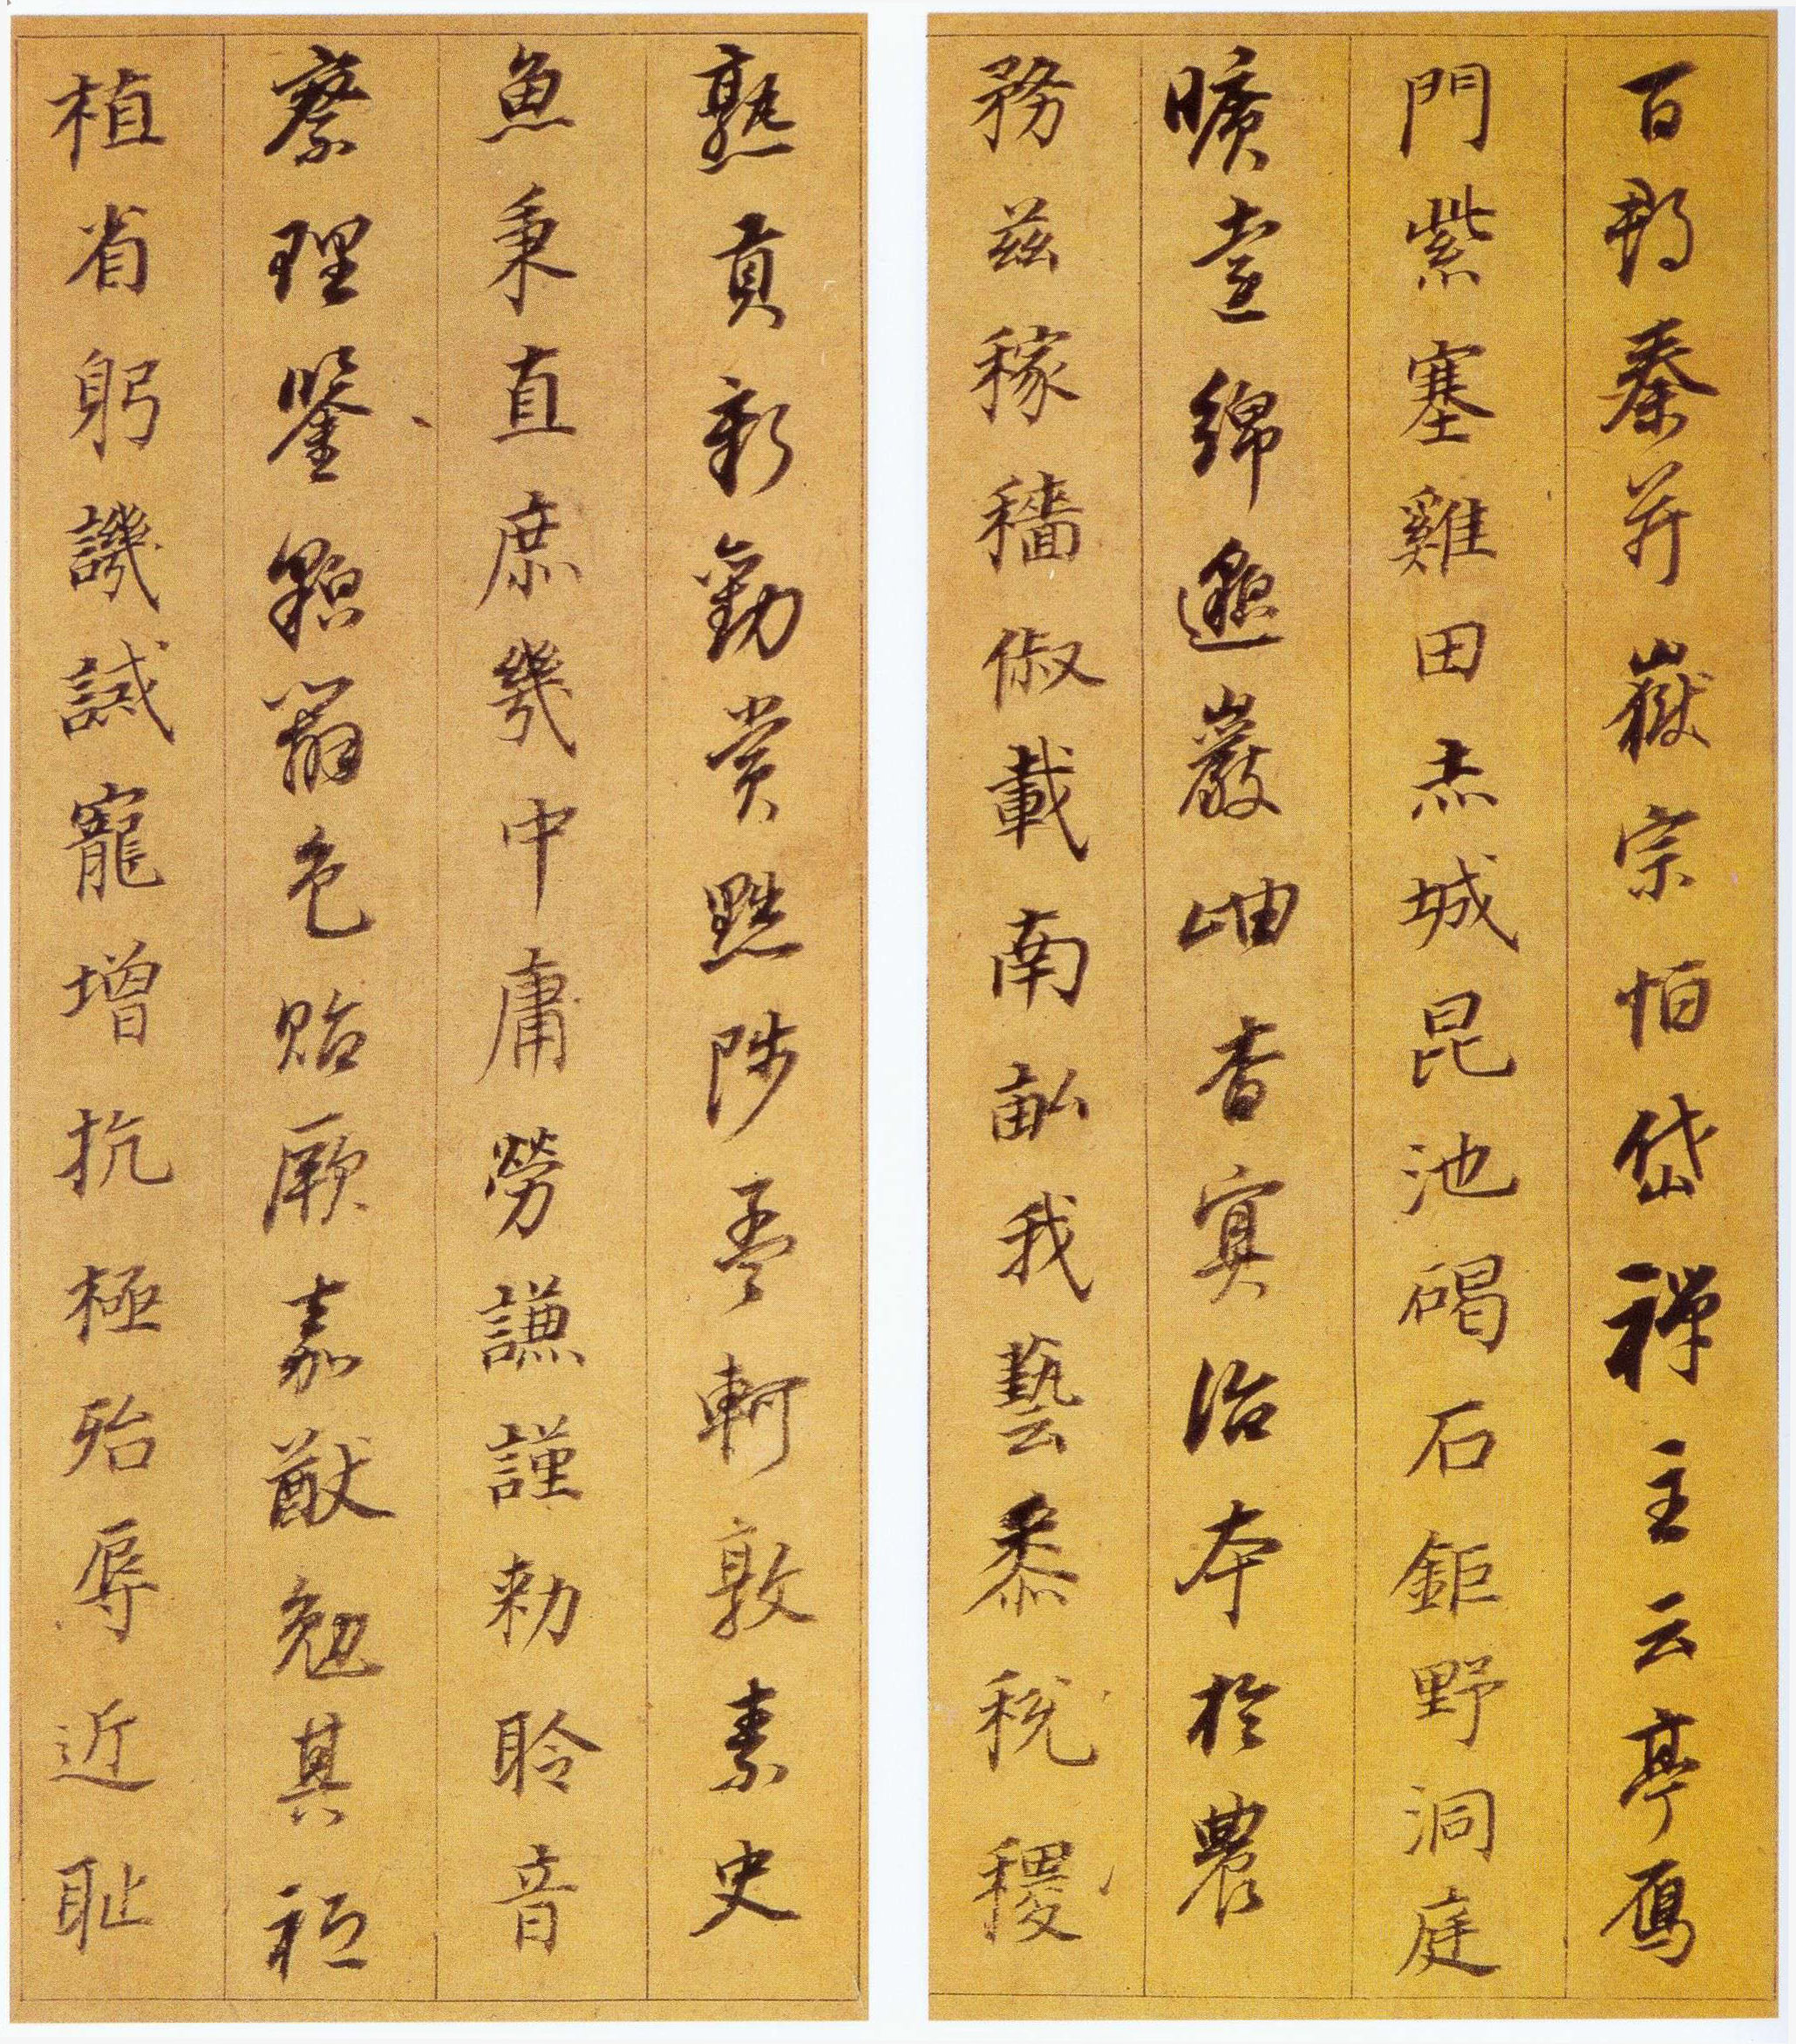 百郡秦并嶽宗怕岱禪主云亭鴈
門紫塞雞田赤城昆池碣石鉅野洞庭
曠遠綿邈巖岫杳冥治本於農
務茲稼穡俶載南畝我藝黍稅稷
熟貢新勸賞黜陟孟軻敦素史
魚秉直庶幾中庸勞謙謹勑聆音
察理鑒貌辯色貽厥嘉猷勉其祗
植省躬譏誡寵增抗極殆辱近耻